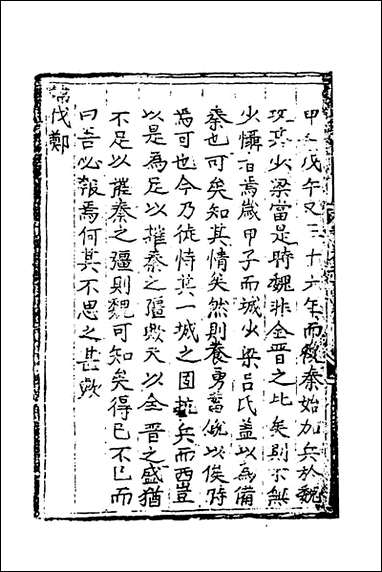 甲 戊午又三十六年而後秦始加兵於魏
攻其少梁當是時魏非全晋之比矣則不無
少懾 焉歲甲子而城少梁吕氏盖以為備
秦也可矣知其情矣然則養勇蓄鋭以俟時
焉可也今乃徒恃其一城之固 兵而西豈
以是為足以摧秦之彊歟夫以全晋之盛猶
不足以摧秦之彊則魏可知矣得已不已而
曰吾必報焉何其不思之甚歟
伐鄭